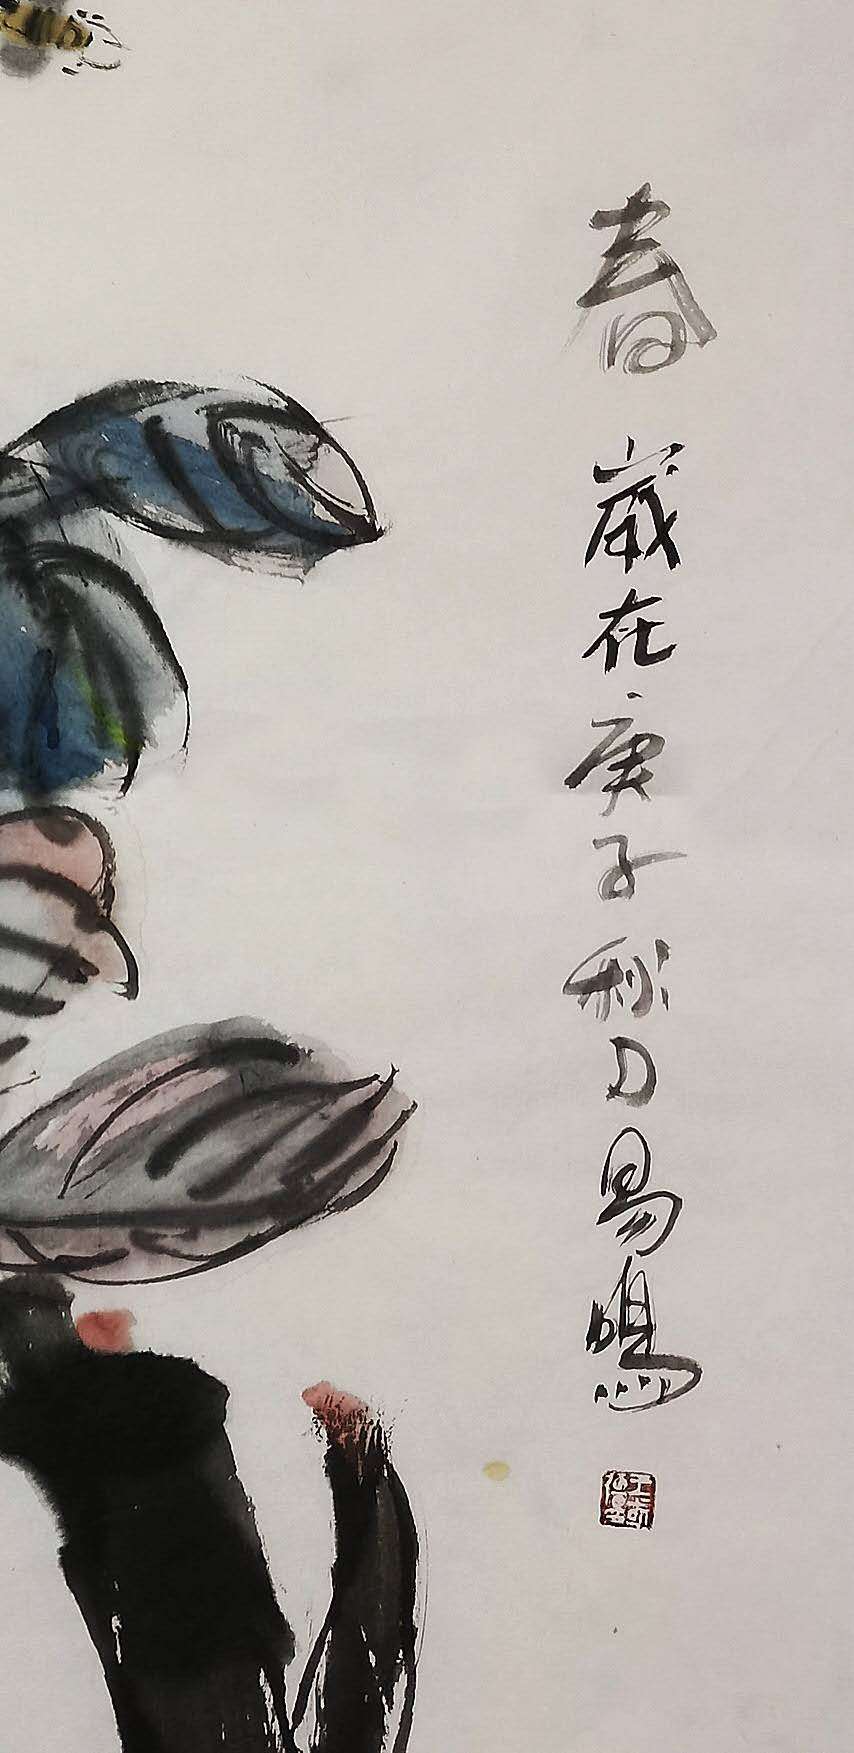 春 歲在庚子秋日易鳴